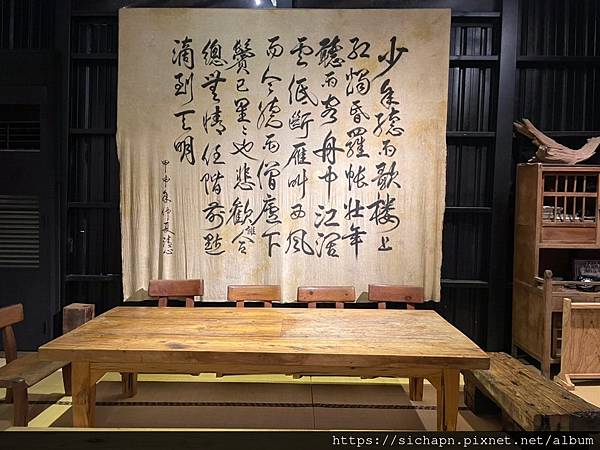 少年聽雨歌樓上
紅燭昏羅帳壯年
聽雨客舟中江闊
雲低斷雁叫西風
而今聽雨僧廬下
鬢已星星也悲歡離合
總無情任階前點
滴到天明
甲申年仲夏清心
https://sichapn.pixnet.net/album